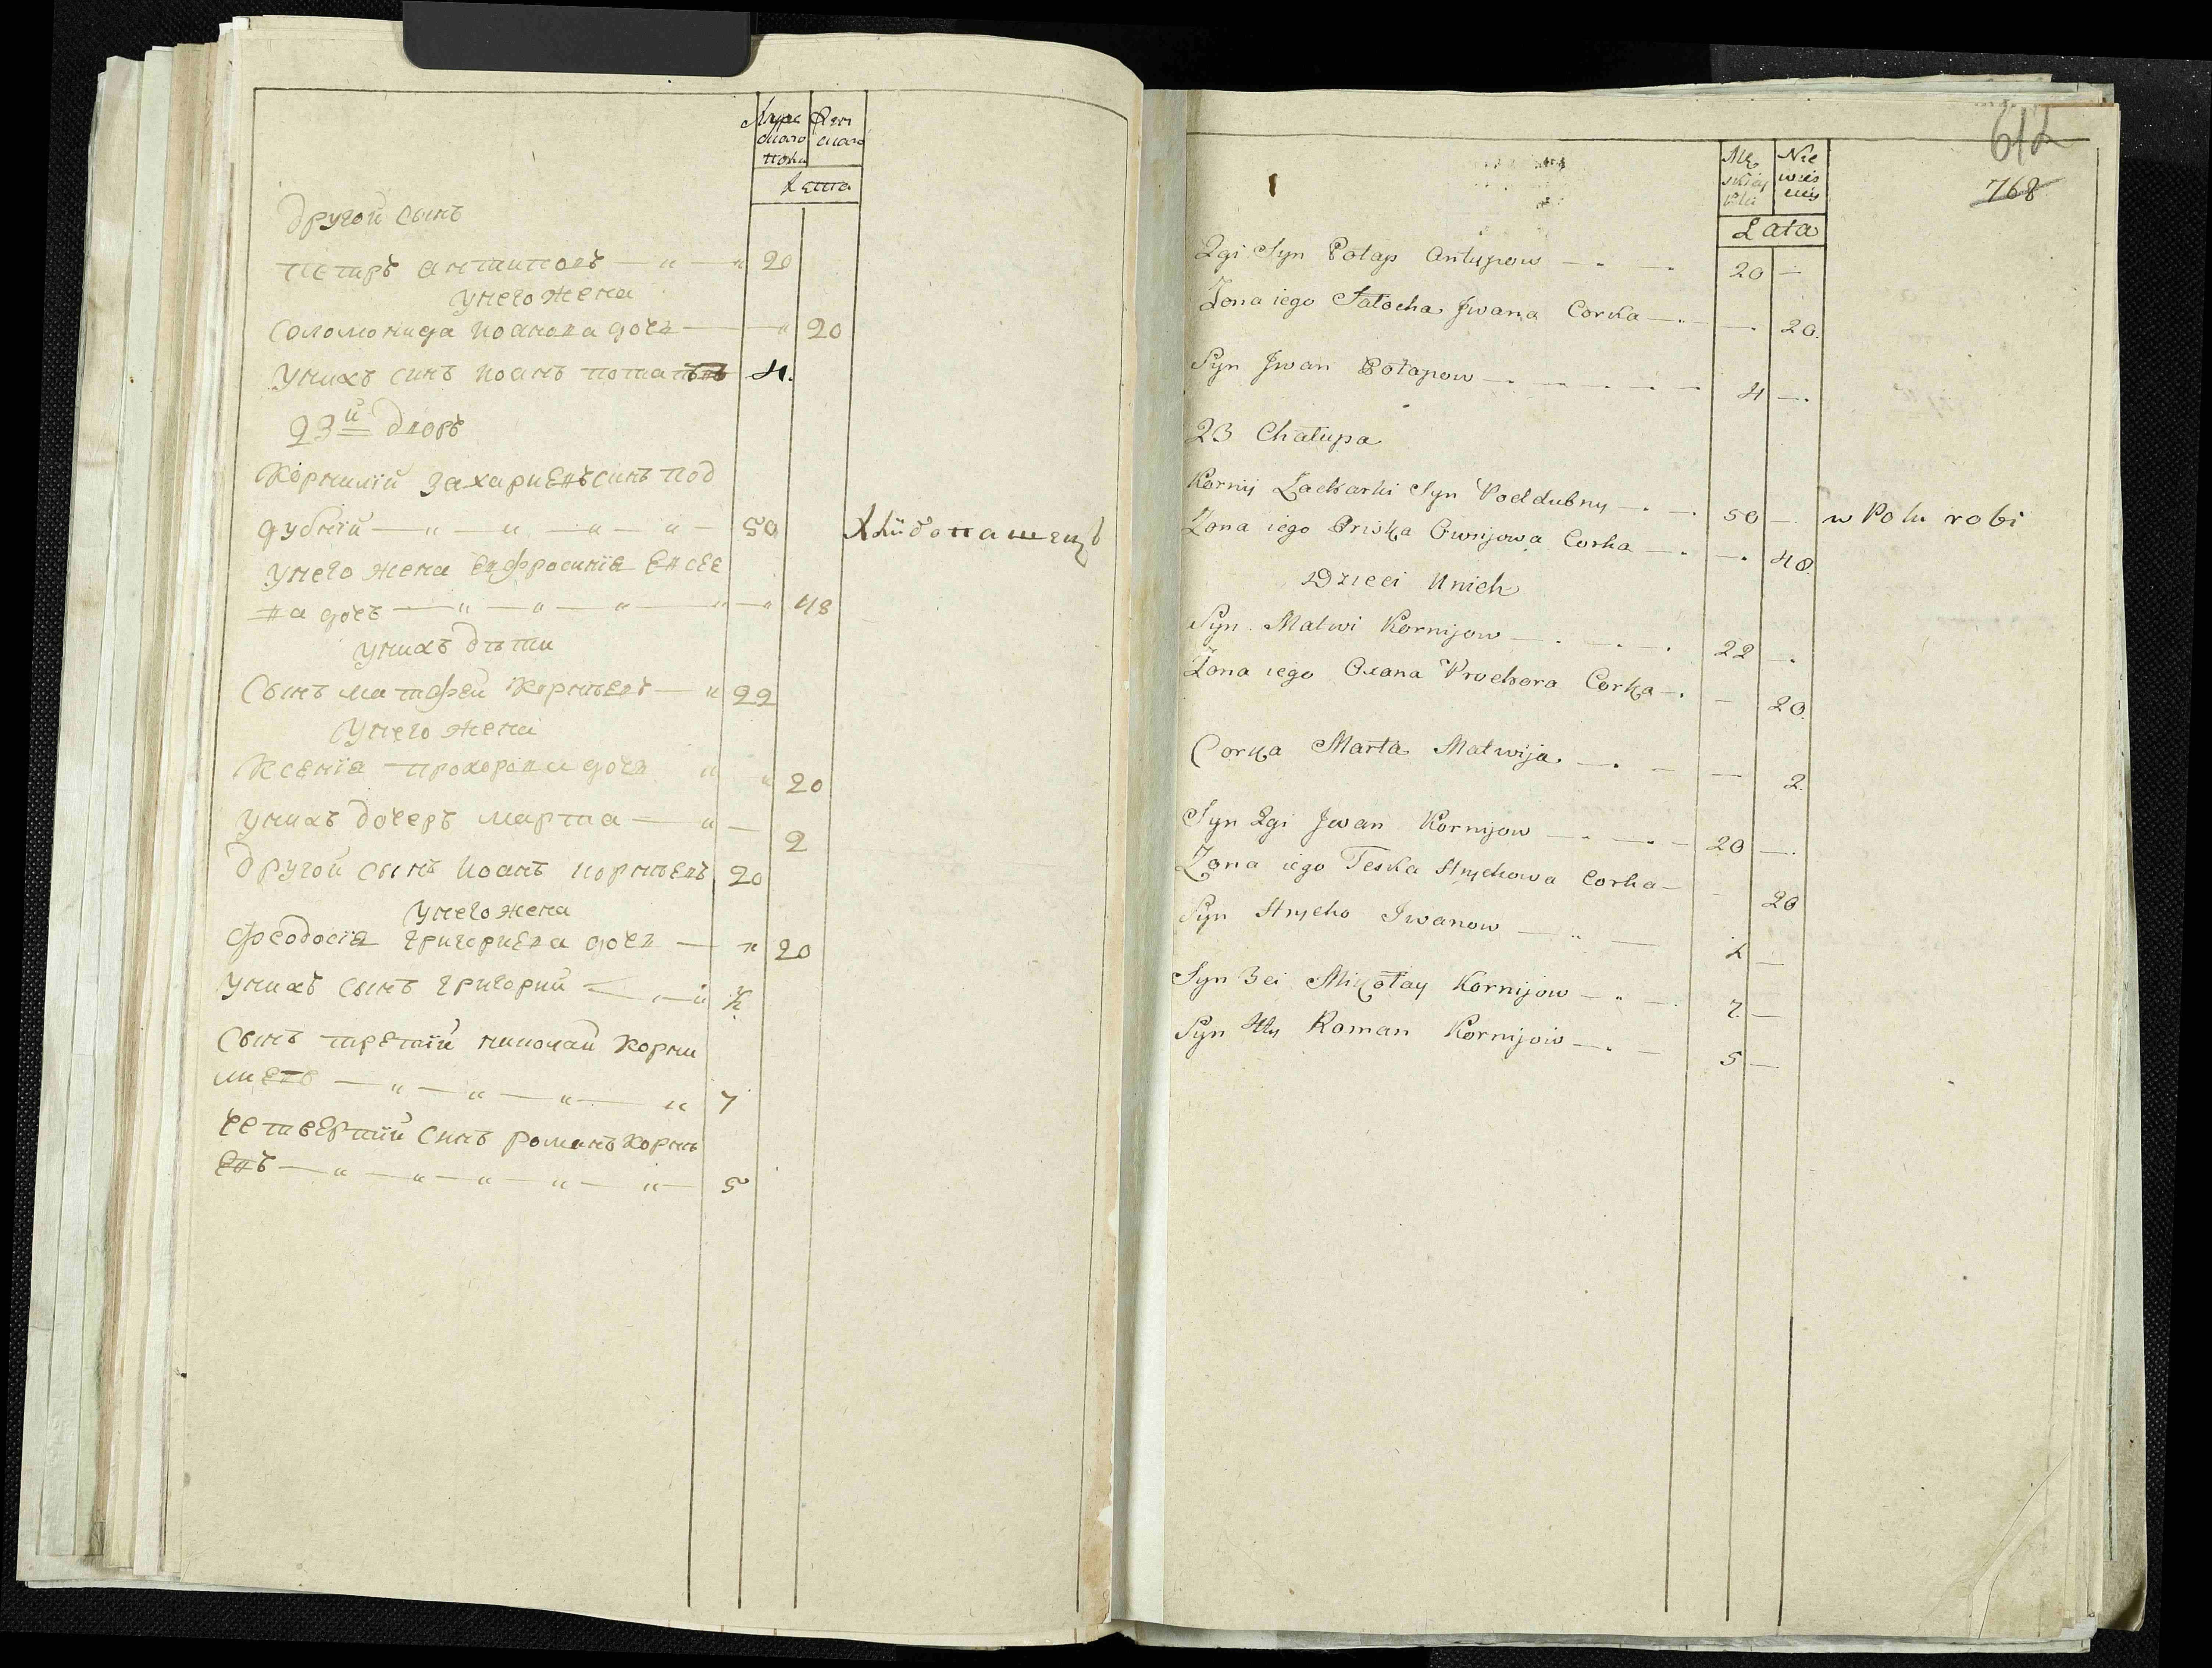 Муже
скаго
полу
Жен
скаго
Лета
Другой сынъ
петаръ антиповъ — „ — „ 20
У него жена
Соломонида иоанова дочь — „ 20
У нихъ синъ иоанъ 4.
23й Дворъ
Корнилій захариевъ синъ под
дубній — „ — „ — „ — „ — 50 Хлѣбопашецъ
У него жена Евфросиніа Евсее
ва дочъ — „ — „ — „ — „ — „ 48
У нихъ дѣти
Сынъ матфей Корнѣевъ — „ 22
У него жена
Ксеніа прохорова дочь „ „ 20
У нихъ дочеръ марта — „ — 2
Другой сынъ иоанъ корнѣевъ 20
У него жена
феодосіа григориева дочь — „ 20
У нихъ сынъ григорий — „ — „ ½
Сынъ третій николай Корни
лиевъ — „ — „ — „ — „ 7
Четвертій синъ романъ Корнѣ
евъ — „ — „ — „ — „ — „ — 5
612
768
Mę
skiey
Płci
Nie
wieś
ciey
Lata
2gi Syn Potap Antypow — 20 —
Żona iego Sałocha Jwana Corka — 20.
Syn Jwan Potapow — 4 —
23 Chałupa
Korniy Zacharki Syn Poddubny — 50 — w Polu robi
Zona iego Priska Owsijowa Corka — 48.
Dzieci Unich
Syn Matwi Kornijow — 22 —
Żona iego Oxana Prochora Corka — 20.
Corka Marta Matwija — 2.
Syn 2gi Jwan Kornijow — 20 —
Zona iego Teska Hrychowa Corka — 20
Syn Hrycho Jwanow — ½ —
Syn 3ci Mikołay Kornijow — 7. —
Syn 4ty Roman Kornijow — 5 —